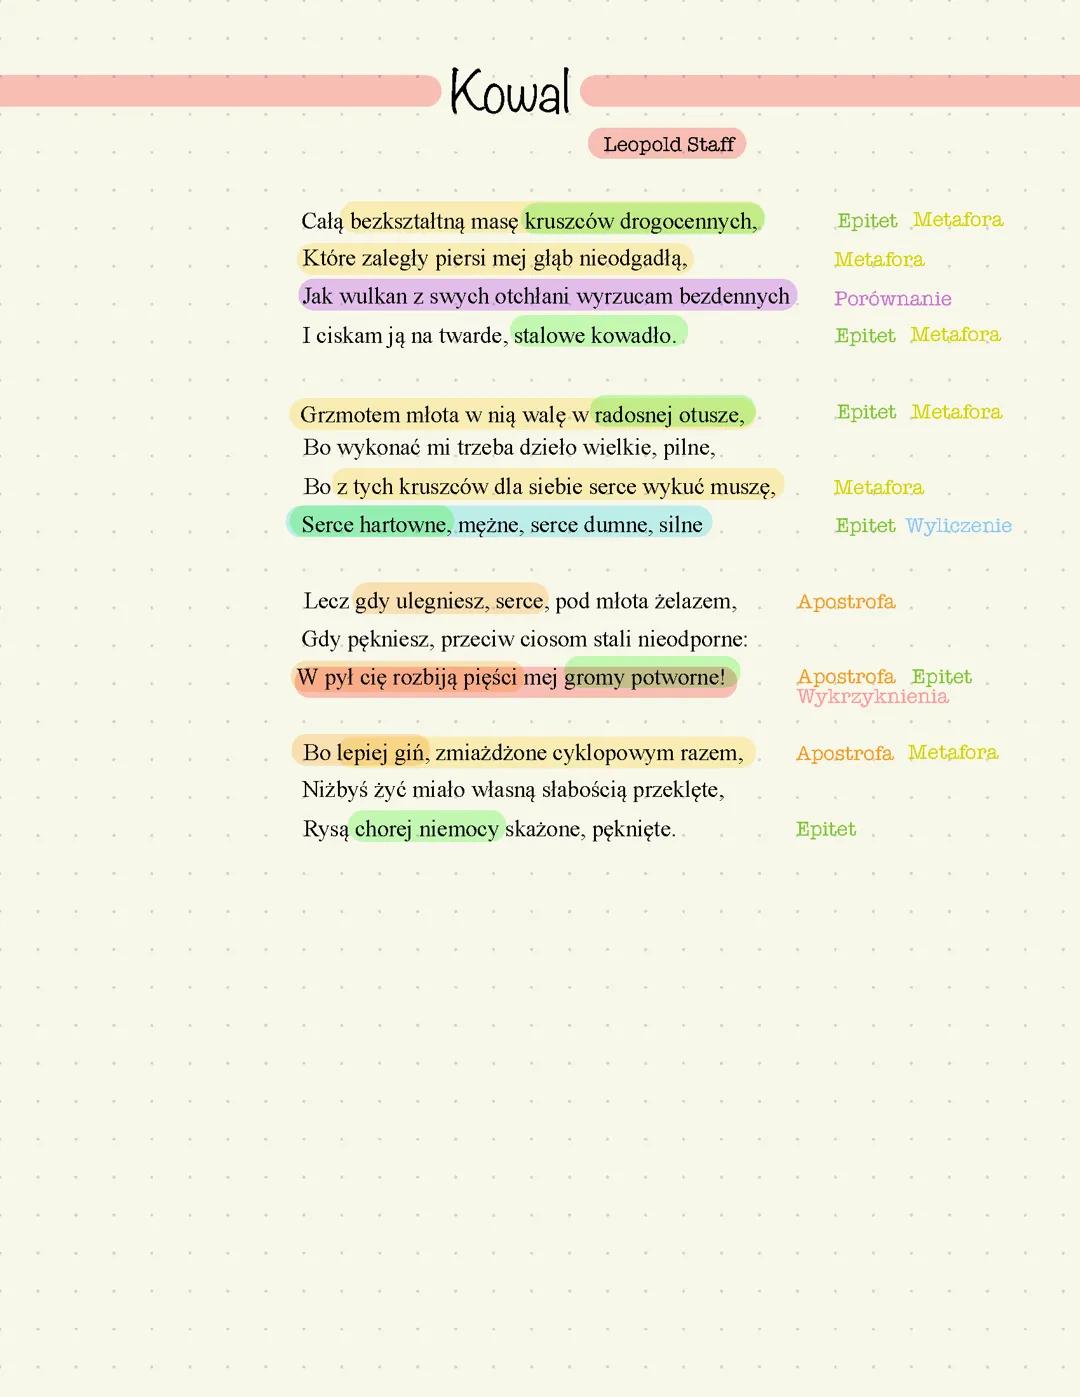 Kowal
Leopold Staff
Całą bezkształtną masę kruszców drogocennych, Epitet Metafora
Które zaległy piersi mej głąb nieodgadłą, Metafora
Jak wulkan z swych otchłani wyrzucam bezdennych Porównanie
I ciskam ją na twarde, stalowe kowadło. Epitet Metafora
Grzmotem młota w nią walę w radosnej otusze, Epitet Metafora
Bo wykonać mi trzeba dzieło wielkie, pilne,
Bo z tych kruszców dla siebie serce wykuć muszę, Metafora
Serce hartowne, mężne, serce dumne, silne Epitet Wyliczenie
Lecz gdy ulegniesz, serce, pod młota żelazem, Apostrofa
Gdy pękniesz, przeciw ciosom stali nieodporne:
W pył cię rozbiją pięści mej gromy potworne! Apostrofa Epitet
Wykrzyknienia
Bo lepiej giń, zmiażdżone cyklopowym razem, Apostrofa Metafora
Niżbyś żyć miało własną słabością przeklęte,
Rysą chorej niemocy skażone, pęknięte. Epitet